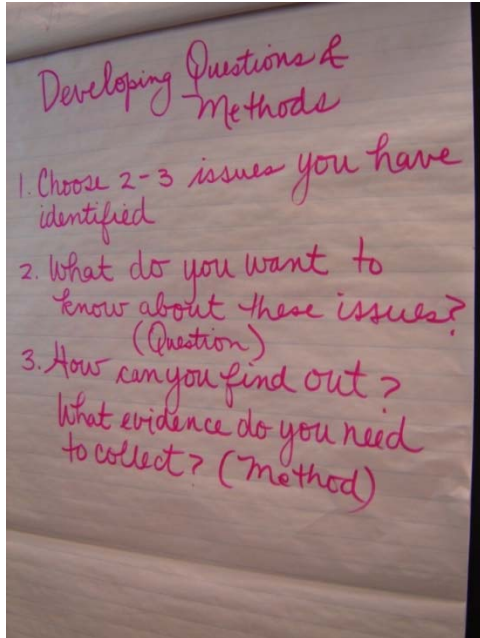 Developing Questions &
Methods
1. Choose 2-3 issues you have
identified
2. What do you want to
know about these issues?
(Question)
3. How can you find out?
What evidence do you need
to collect? (Method)